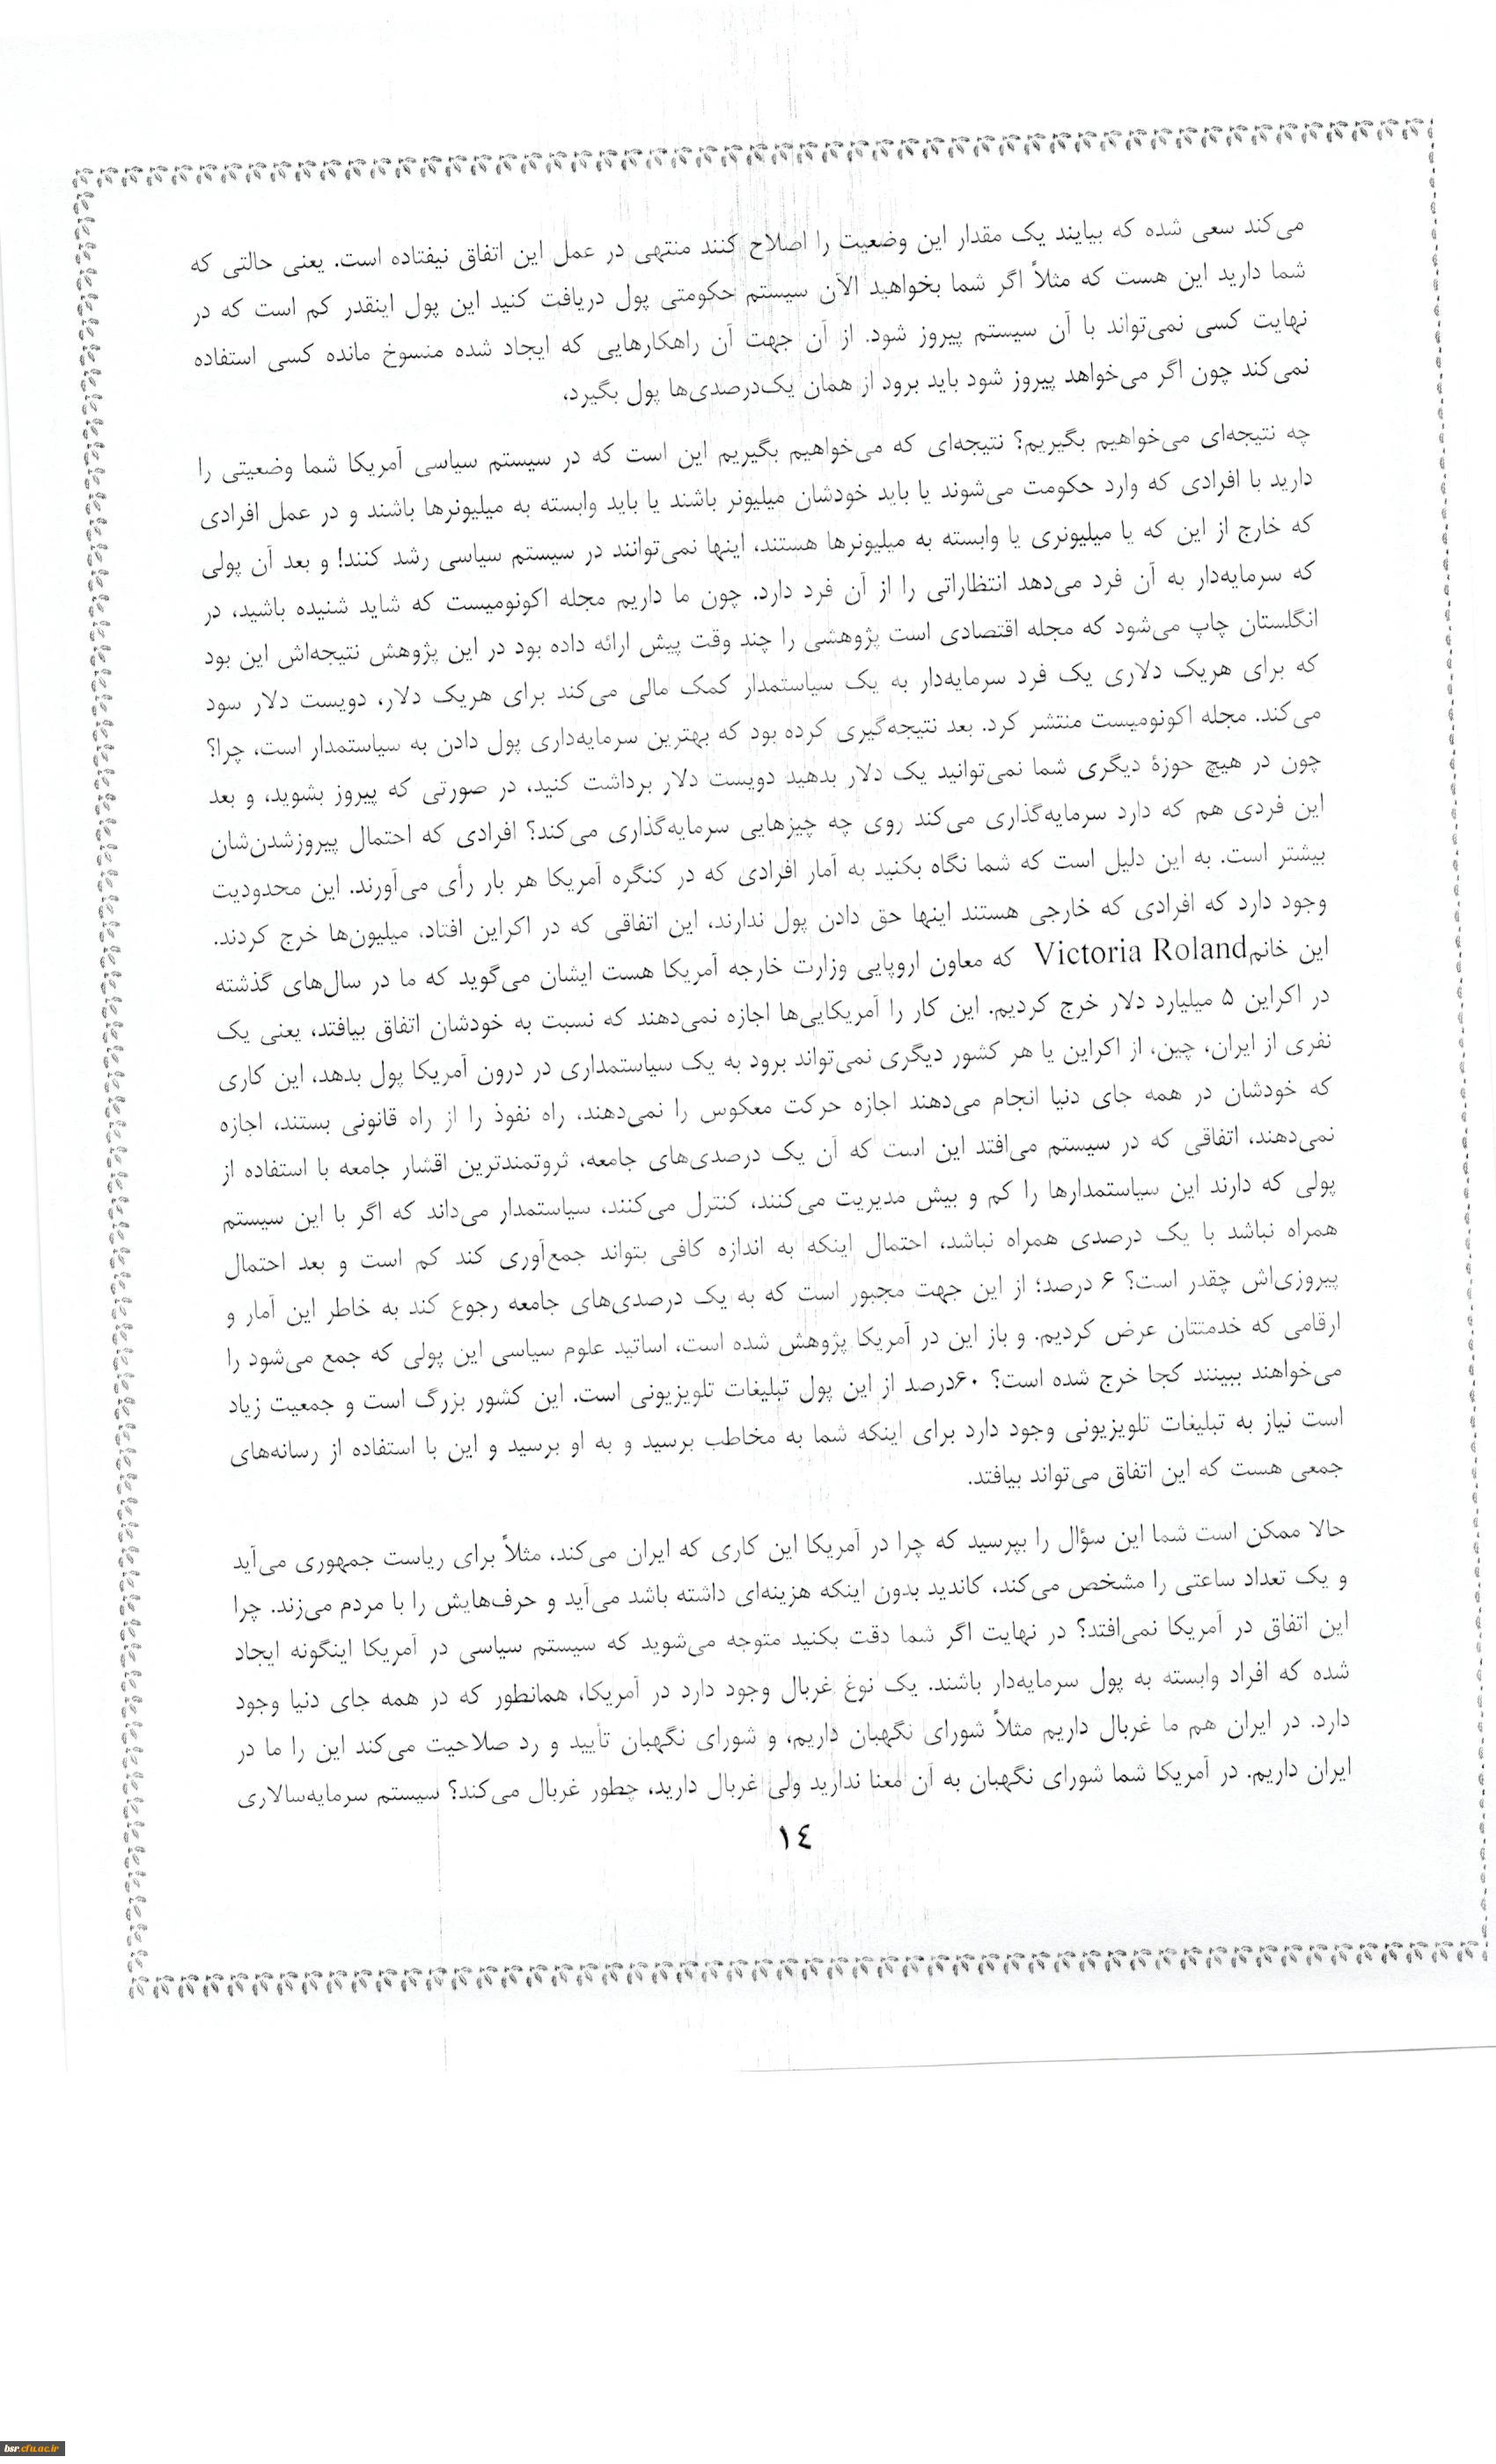 می‌کند سعی شده که بیایند یک مقدار این وضعیت را اصلاح کنند منتهی در عمل این اتفاق نیفتاده است. یعنی حالتی که
شما دارید این هست که مثلاً اگر شما بخواهید الآن سیستم حکومتی پول دریافت کنید این پول اینقدر کم است که در
نهایت کسی نمی‌تواند با آن سیستم پیروز شود. از آن جهت آن راهکارهایی که ایجاد شده منسوخ مانده کسی استفاده
نمی‌کند چون اگر می‌خواهد پیروز شود باید برود از همان یک‌درصدی‌ها پول بگیرد،
چه نتیجه‌ای می‌خواهیم بگیریم؟ نتیجه‌ای که می‌خواهیم بگیریم این است که در سیستم سیاسی آمریکا شما وضعیتی را
دارید با افرادی که وارد حکومت می‌شوند یا باید خودشان میلیونر باشند یا باید وابسته به میلیونرها باشند و در عمل افرادی
که خارج از این که یا میلیونری یا وابسته به میلیونرها هستند، اینها نمی‌توانند در سیستم سیاسی رشد کنند! و بعد آن پولی
که سرمایه‌دار به آن فرد می‌دهد انتظاراتی را از آن فرد دارد. چون ما داریم مجله اکونومیست که شاید شنیده باشید، در
انگلستان چاپ می‌شود که مجله اقتصادی است پژوهشی را چند وقت پیش ارائه داده بود در این پژوهش نتیجه‌اش این بود
که برای هریک دلاری یک فرد سرمایه‌دار به یک سیاستمدار کمک مالی می‌کند برای هریک دلار، دویست دلار سود
می‌کند. مجله اکونومیست منتشر کرد. بعد نتیجه‌گیری کرده بود که بهترین سرمایه‌داری پول دادن به سیاستمدار است، چرا؟
چون در هیچ حوزهٔ دیگری شما نمی‌توانید یک دلار بدهید دویست دلار برداشت کنید، در صورتی که پیروز بشوید، و بعد
این فردی هم که دارد سرمایه‌گذاری می‌کند روی چه چیزهایی سرمایه‌گذاری می‌کند؟ افرادی که احتمال پیروزشدن‌شان
بیشتر است. به این دلیل است که شما نگاه بکنید به آمار افرادی که در کنگره آمریکا هر بار رأی می‌آورند. این محدودیت
وجود دارد که افرادی که خارجی هستند اینها حق دادن پول ندارند، این اتفاقی که در اکراین افتاد، میلیون‌ها خرج کردند.
این خانمVictoria Roland که معاون اروپایی وزارت خارجه آمریکا هست ایشان می‌گوید که ما در سال‌های گذشته
در اکراین ۵ میلیارد دلار خرج کردیم. این کار را آمریکایی‌ها اجازه نمی‌دهند که نسبت به خودشان اتفاق بیافتد، یعنی یک
نفری از ایران، چین، از اکراین یا هر کشور دیگری نمی‌تواند برود به یک سیاستمداری در درون آمریکا پول بدهد، این کاری
که خودشان در همه جای دنیا انجام می‌دهند اجازه حرکت معکوس را نمی‌دهند، راه نفوذ را از راه قانونی بستند، اجازه
نمی‌دهند، اتفاقی که در سیستم می‌افتد این است که آن یک درصدی‌های جامعه، ثروتمندترین اقشار جامعه با استفاده از
پولی که دارند این سیاستمدارها را کم و بیش مدیریت می‌کنند، کنترل می‌کنند، سیاستمدار می‌داند که اگر با این سیستم
همراه نباشد با یک درصدی همراه نباشد، احتمال اینکه به اندازه کافی بتواند جمع‌آوری کند کم است و بعد احتمال
پیروزی‌اش چقدر است؟ ۶ درصد؛ از این جهت مجبور است که به یک درصدی‌های جامعه رجوع کند به خاطر این آمار و
ارقامی که خدمتتان عرض کردیم. و باز این در آمریکا پژوهش شده است، اساتید علوم سیاسی این پولی که جمع می‌شود را
می‌خواهند ببینند کجا خرج شده است؟ ۶۰درصد از این پول تبلیغات تلویزیونی است. این کشور بزرگ است و جمعیت زیاد
است نیاز به تبلیغات تلویزیونی وجود دارد برای اینکه شما به مخاطب برسید و به او برسید و این با استفاده از رسانه‌های
جمعی هست که این اتفاق می‌تواند بیافتد.
حالا ممکن است شما این سؤال را بپرسید که چرا در آمریکا این کاری که ایران می‌کند، مثلاً برای ریاست جمهوری می‌آید
و یک تعداد ساعتی را مشخص می‌کند، کاندید بدون اینکه هزینه‌ای داشته باشد می‌آید و حرف‌هایش را با مردم می‌زند. چرا
این اتفاق در آمریکا نمی‌افتد؟ در نهایت اگر شما دقت بکنید متوجه می‌شوید که سیستم سیاسی در آمریکا اینگونه ایجاد
شده که افراد وابسته به پول سرمایه‌دار باشند. یک نوغ غربال وجود دارد در آمریکا، همانطور که در همه جای دنیا وجود
دارد. در ایران هم ما غربال داریم مثلاً شورای نگهبان داریم، و شورای نگهبان تأیید و رد صلاحیت می‌کند این را ما در
ایران داریم. در آمریکا شما شورای نگهبان به آن معنا ندارید ولی غربال دارید، چطور غربال می‌کند؟ سیستم سرمایه‌سالاری
١٤
bsr.cfu.ac.ir